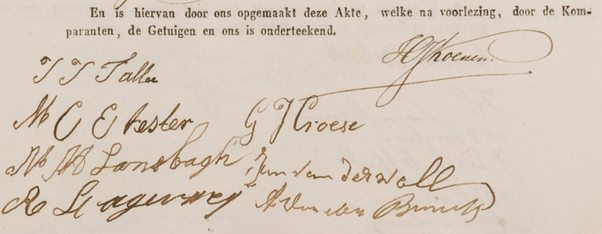 En is hiervan door ons opgemaakt deze Akte, welke na voorlezing, door de Kom-
paranten, de Getuigen en ons is onderteekend.
J J Faller
HJKoenen
M C E bester G J Croese
M H Lansbagh Jan van der woll
R Hageweg A van den